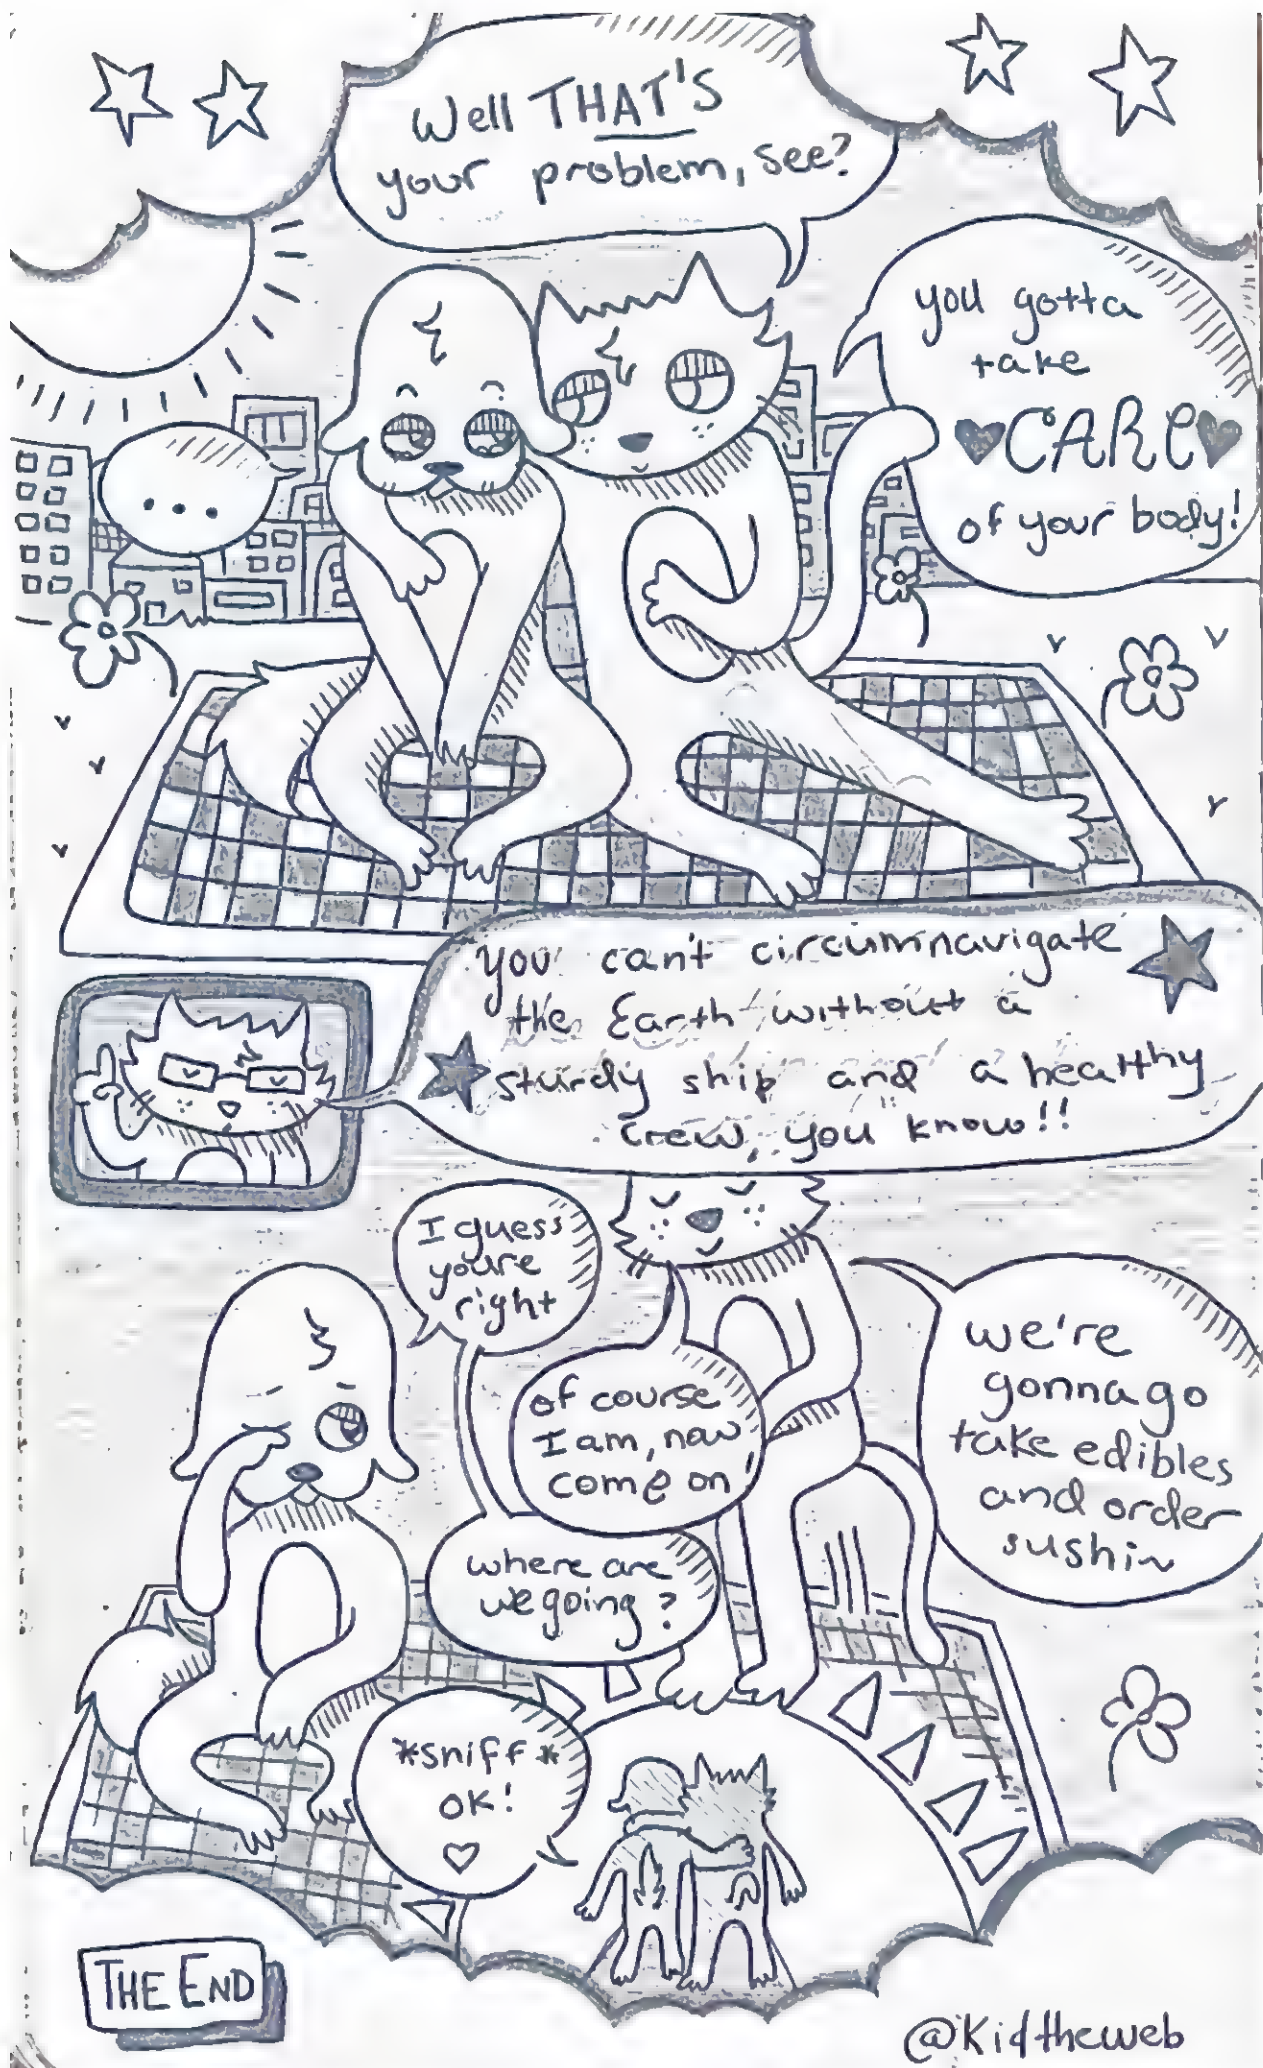 Well THAT'S
your problem, see?
you gotta
take
CARE
of your body!
...
you can't circumnavigate
the Earth without a
sturdy ship and a healthy
crew, you know!!
I guess
youre
right
of course
I am, now
come on!
where are
we going?
we're
gonna go
take edibles
and order
sushi~
*sniff*
OK!
THE END
@Kidtheweb